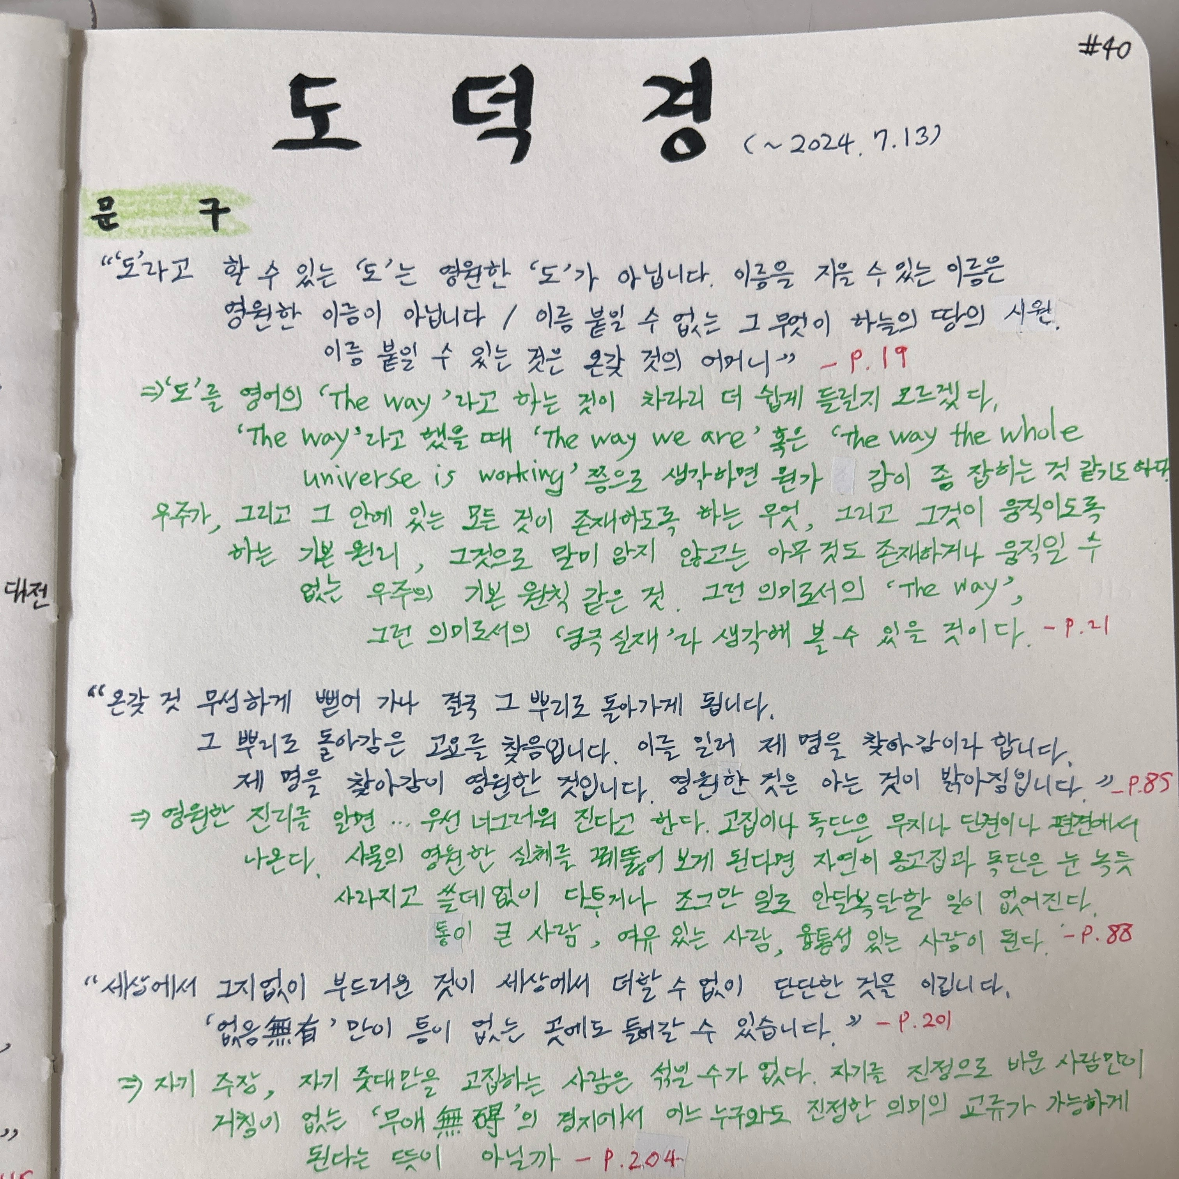 #40
도덕경 (~2024.7.13)
문구
"'도'라고 할 수 있는 '도'는 영원한 '도'가 아닙니다. 이름을 지을 수 있는 이름은
영원한 이름이 아닙니다 / 이름 붙일 수 없는 그 무엇이 하늘의 땅의 시원.
이름 붙일 수 있는 것은 온갖 것의 어머니" - P.19
⇒ '도'를 영어의 'The way'라고 하는 것이 차라리 더 쉽게 들릴지 모르겠다.
'The way'라고 했을 때 'The way we are' 혹은 'The way the whole
universe is working' 쯤으로 생각하면 뭔가 감이 좀 잡히는 것 같기도 하다.
우주가, 그리고 그 안에 있는 모든 것이 존재하도록 하는 무엇, 그리고 그것이 움직이도록
하는 기본 원리, 그것으로 말미암지 않고는 아무 것도 존재하거나 움직일 수
없는 우주의 기본 원칙 같은 것. 그런 의미로서의 'The way',
그런 의미로서의 '궁극 실재'라 생각해 볼 수 있을 것이다. - P.21
"온갖 것 무성하게 뻗어 가나 결국 그 뿌리로 돌아가게 됩니다.
그 뿌리로 돌아감은 고요를 찾음입니다. 이를 일러 제 명을 찾아감이라 합니다.
제 명을 찾아감이 영원한 것입니다. 영원한 것은 아는 것이 밝아짐입니다." - P.85
⇒ 영원한 진리를 알면 ... 우선 너그러워 진다고 한다. 고집이나 독단은 무지나 단견이나 편견에서
나온다. 사물의 영원한 실체를 꿰뚫어 보게 된다면 자연히 옹고집과 독단은 눈 녹듯
사라지고 쓸데없이 다투거나 조그만 일로 안달복달할 일이 없어진다.
통이 큰 사람, 여유 있는 사람, 융통성 있는 사람이 된다. - P.88
"세상에서 그지없이 부드러운 것이 세상에서 더할 수 없이 단단한 것을 이깁니다.
'없음無有'만이 틈이 없는 곳에도 들어갈 수 있습니다." - P.201
⇒ 자기 주장, 자기 줏대만을 고집하는 사람은 섞일 수가 없다. 자기를 진정으로 비운 사람만이
거침이 없는 '무애無碍'의 경지에서 어느 누구와도 진정한 의미의 교류가 가능하게
된다는 뜻이 아닐까 - P.204
대전